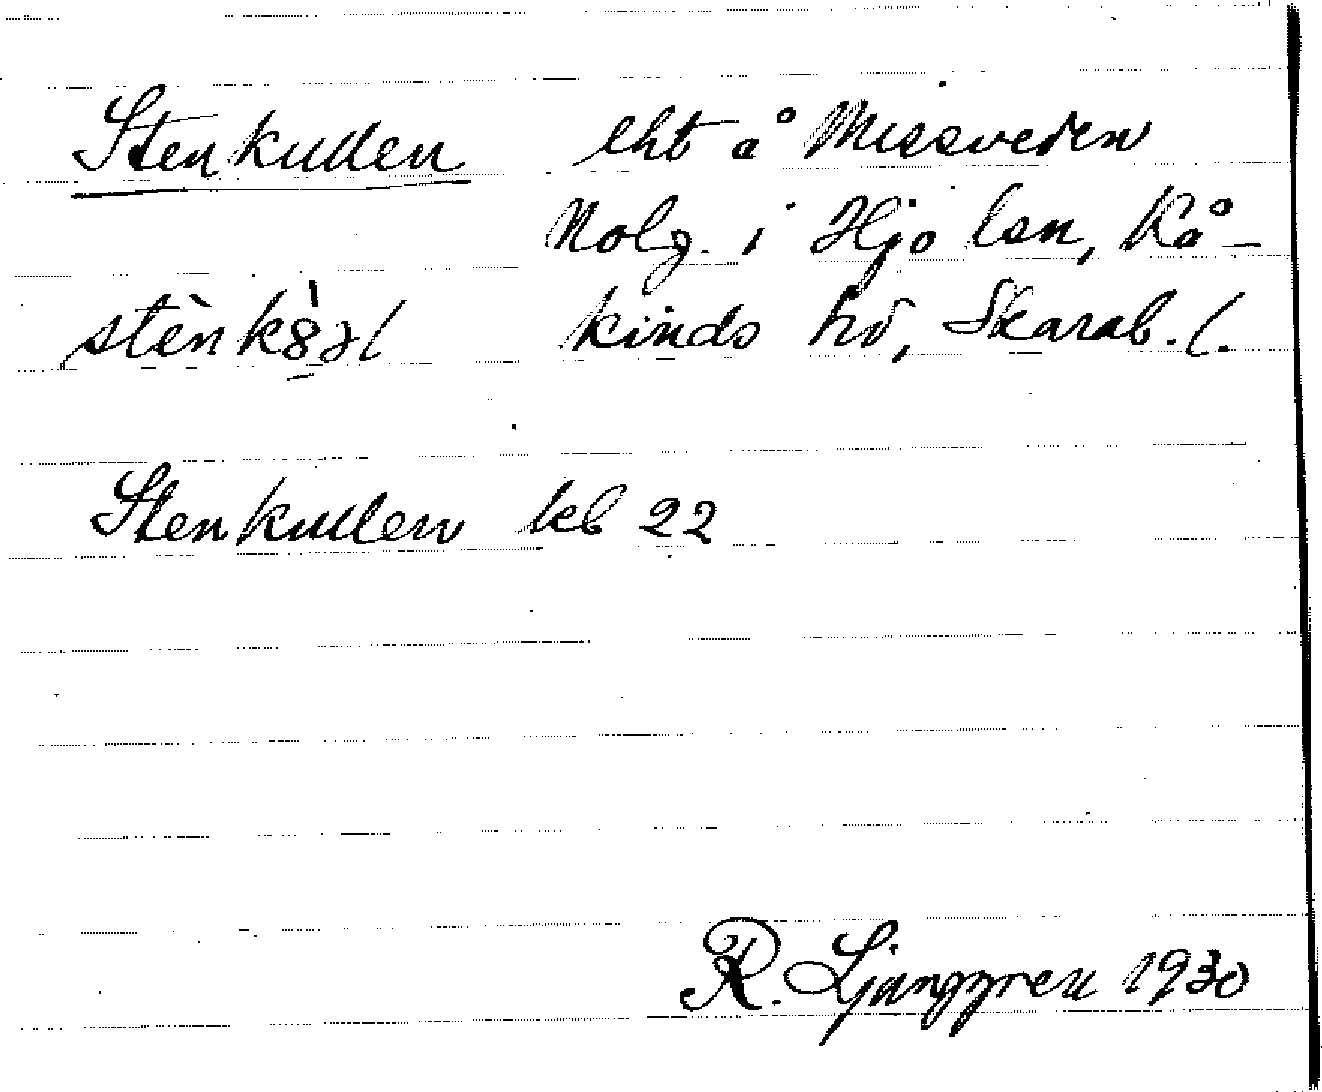 Stenkullen lht å Missveden
Nolg. i Hjo lsn, Kå-
kinds hd, Skarab. l.
Stenkullen kb 22
R. Ljunggren 1930